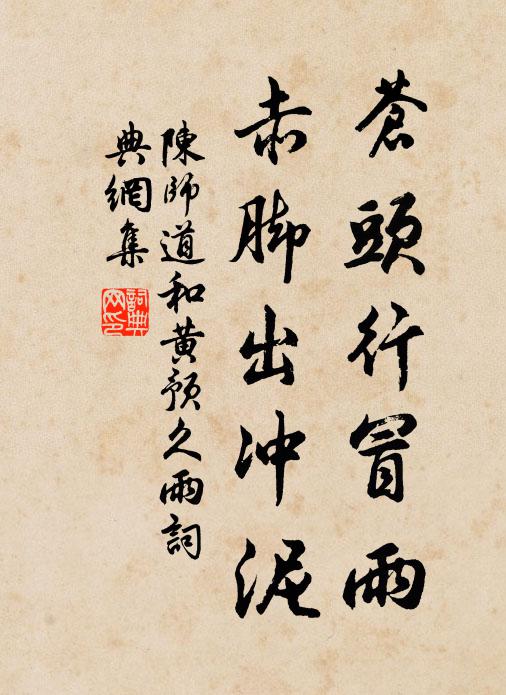 蒼頭行冒雨
赤脚出冲泥
陳師道和黄預久雨詞
典網集
詞典网印